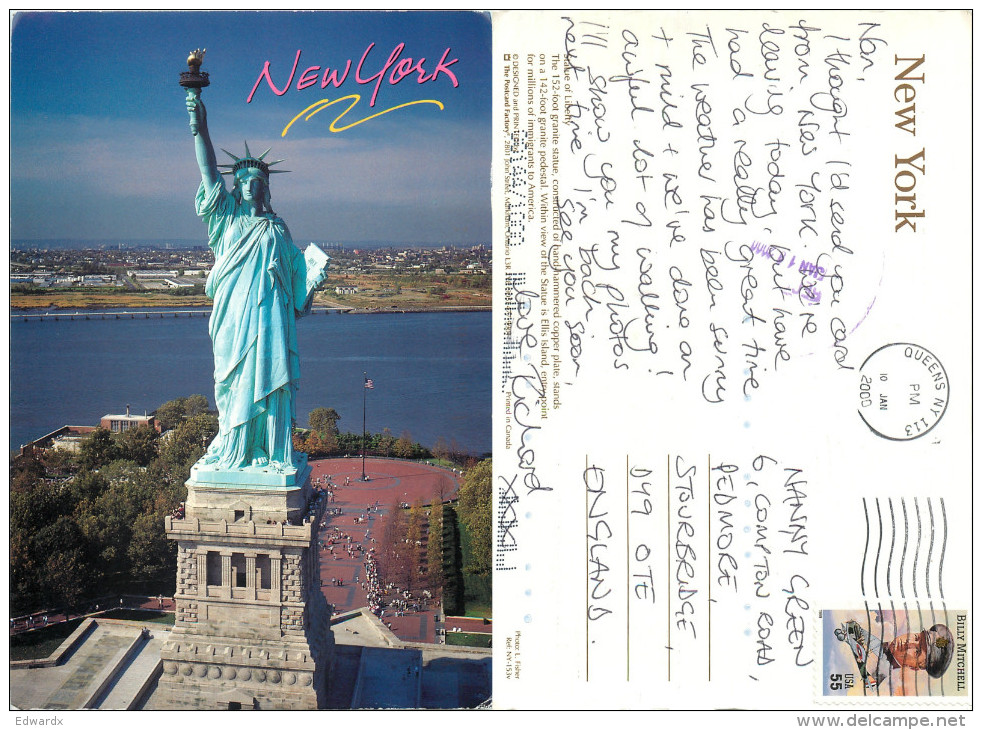 New York
New York
Nan,
I thought I'd send you a card
from New York. We're
leaving today, but have
had a really great time
The weather has been sunny
+ mild + we've done an
awful lot of walking!
I'll show you my photos
next time I'm back.
See you soon,
love Richard
xxx
NANNY GREEN
6 COMPTON ROAD,
PEDMORE,
STOURBRIDGE,
DY9 OTE
ENGLAND.
QUEENS NY 113
PM
10 JAN
2000
BILLY MITCHELL
USA
55
Statue of Liberty
The 152-foot granite statue, constructed of hand hammered copper plate, stands
on a 142-foot granite pedestal. Within view of the Statue is Ellis Island, entry point
for millions of immigrants to America.
© DESIGNED and PRINTED
The Postcard Factory® 2801 John Street, Markham, Ontario L3R
Printed in Canada
Photo: L. Fisher
Ref: NY-153v
Edwardx
delcampe.net